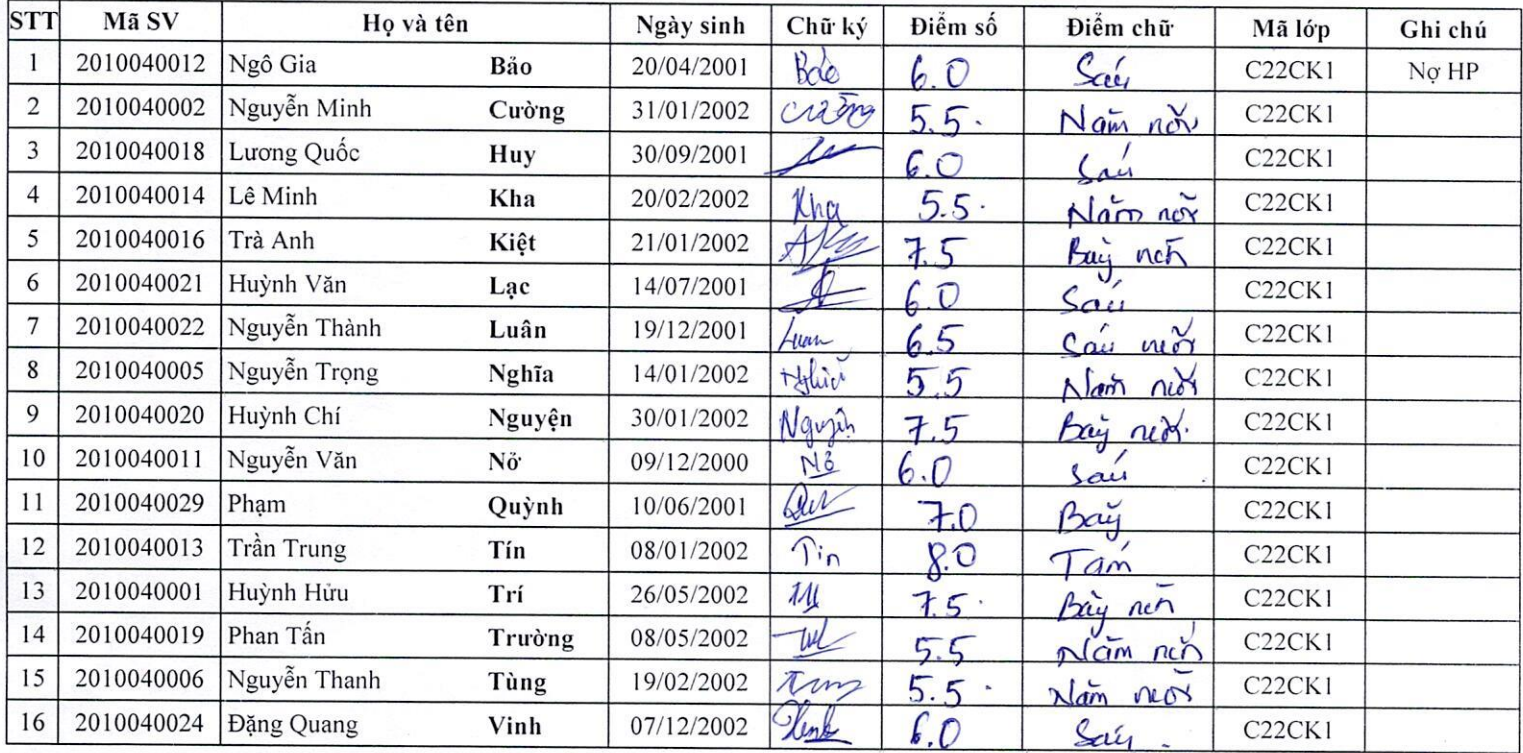 STT Mã SV Họ và tên Ngày sinh Chữ ký Điểm số Điểm chữ Mã lớp Ghi chú
1 2010040012 Ngô Gia Bảo 20/04/2001 Bảo 6.0 Sáu C22CK1 Nợ HP
2 2010040002 Nguyễn Minh Cường 31/01/2002 Cường 5.5 Năm rưỡi C22CK1
3 2010040018 Lương Quốc Huy 30/09/2001 6.0 Sáu C22CK1
4 2010040014 Lê Minh Kha 20/02/2002 Kha 5.5 Năm rưỡi C22CK1
5 2010040016 Trà Anh Kiệt 21/01/2002 7.5 Bảy rưỡi C22CK1
6 2010040021 Huỳnh Văn Lạc 14/07/2001 6.0 Sáu C22CK1
7 2010040022 Nguyễn Thành Luân 19/12/2001 Luân 6.5 Sáu rưỡi C22CK1
8 2010040005 Nguyễn Trọng Nghĩa 14/01/2002 Nghĩa 5.5 Năm rưỡi C22CK1
9 2010040020 Huỳnh Chí Nguyện 30/01/2002 Nguyện 7.5 Bảy rưỡi C22CK1
10 2010040011 Nguyễn Văn Nở 09/12/2000 Nở 6.0 Sáu C22CK1
11 2010040029 Phạm Quỳnh 10/06/2001 7.0 Bảy C22CK1
12 2010040013 Trần Trung Tín 08/01/2002 Tín 8.0 Tám C22CK1
13 2010040001 Huỳnh Hửu Trí 26/05/2002 7.5 Bảy rưỡi C22CK1
14 2010040019 Phan Tấn Trường 08/05/2002 5.5 Năm rưỡi C22CK1
15 2010040006 Nguyễn Thanh Tùng 19/02/2002 5.5 Năm rưỡi C22CK1
16 2010040024 Đặng Quang Vinh 07/12/2002 6.0 Sáu C22CK1